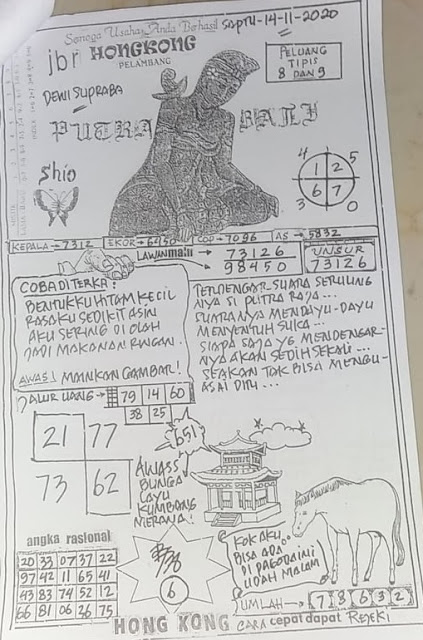 Semoga Usaha Anda Berhasil
SAPTU-14-11-2020
jbr HONGKONG
PELAMBANG
PELUANG
TIPIS
8 DAN 9
DEWI SUPRABA
PUTRA BALI
Shio
4 5
1 2
6 7
3 0
KEPALA→7312 EKOR→6450 COP→7096 AS→5832
LAWAN main → 73126
→ 98450
UNSUR
73126
COBA DITERKA:
BENTUKKU HITAM KECIL
RASAKU SEDIKIT ASIN
AKU SERING DI OLAH
JADI MAKANAN RINGAN.
AWAS! MAINKAN GAMBAR!
TERDENGAR SUARA SERULING
NYA SI PUTRA RAJA...
SUARANYA MENDAYU-DAYU
MENYENTUH SUKA...
SIAPA SAJA YG MENDENGAR-
NYA AKAN SEDIH SEKALI...
SEAKAN TAK BISA MENGU-
ASAI DIRI...
JALUR UANG→ 79 14 60
38 25
21 77
73 62
651
AWASS
BUNGA
LAYU
KUMBANG
MERANA!
6
KOK AKU
BISA ADA
DI PAGODA INI
UDAH MALAM
angka rasional
20 33 07 37 22
97 42 11 65 41
43 83 74 52 12
66 81 06 26 75
JUMLAH→ 7 8 6 3 2
HONG KONG CARA cepat dapat REJEKI